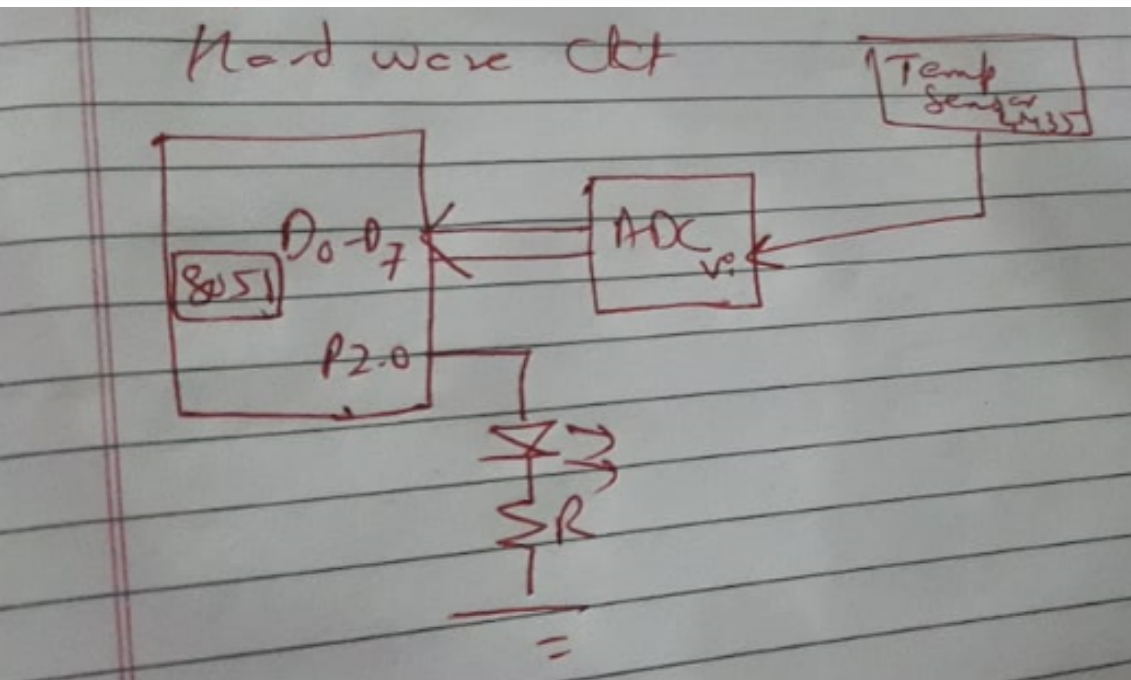 Hard ware ckt
Temp
Sensor
LM35
D0-D7
ADC
Vi
8051
P2.0
R